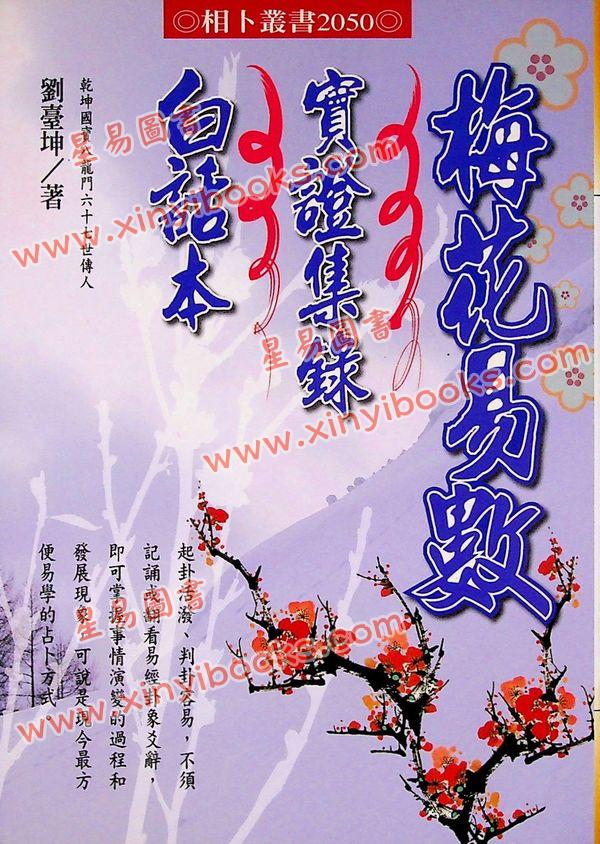 ◎相卜叢書2050◎
梅花易數
實證集錄
白話本
劉臺坤／著
乾坤國寶 龍門六十七世傳人
起卦活潑、判卦容易，不須
記誦或翻看易經卦象爻辭，
即可掌握事情演變的過程和
發展現象，可說是現今最方
便易學的占卜方式。
星易圖書
www.xinyibooks.com
星易圖書
www.xinyibooks.com
星易圖書
www.xinyibooks.com
星易圖書
www.xinyibooks.com
星易圖書
www.xinyibooks.com